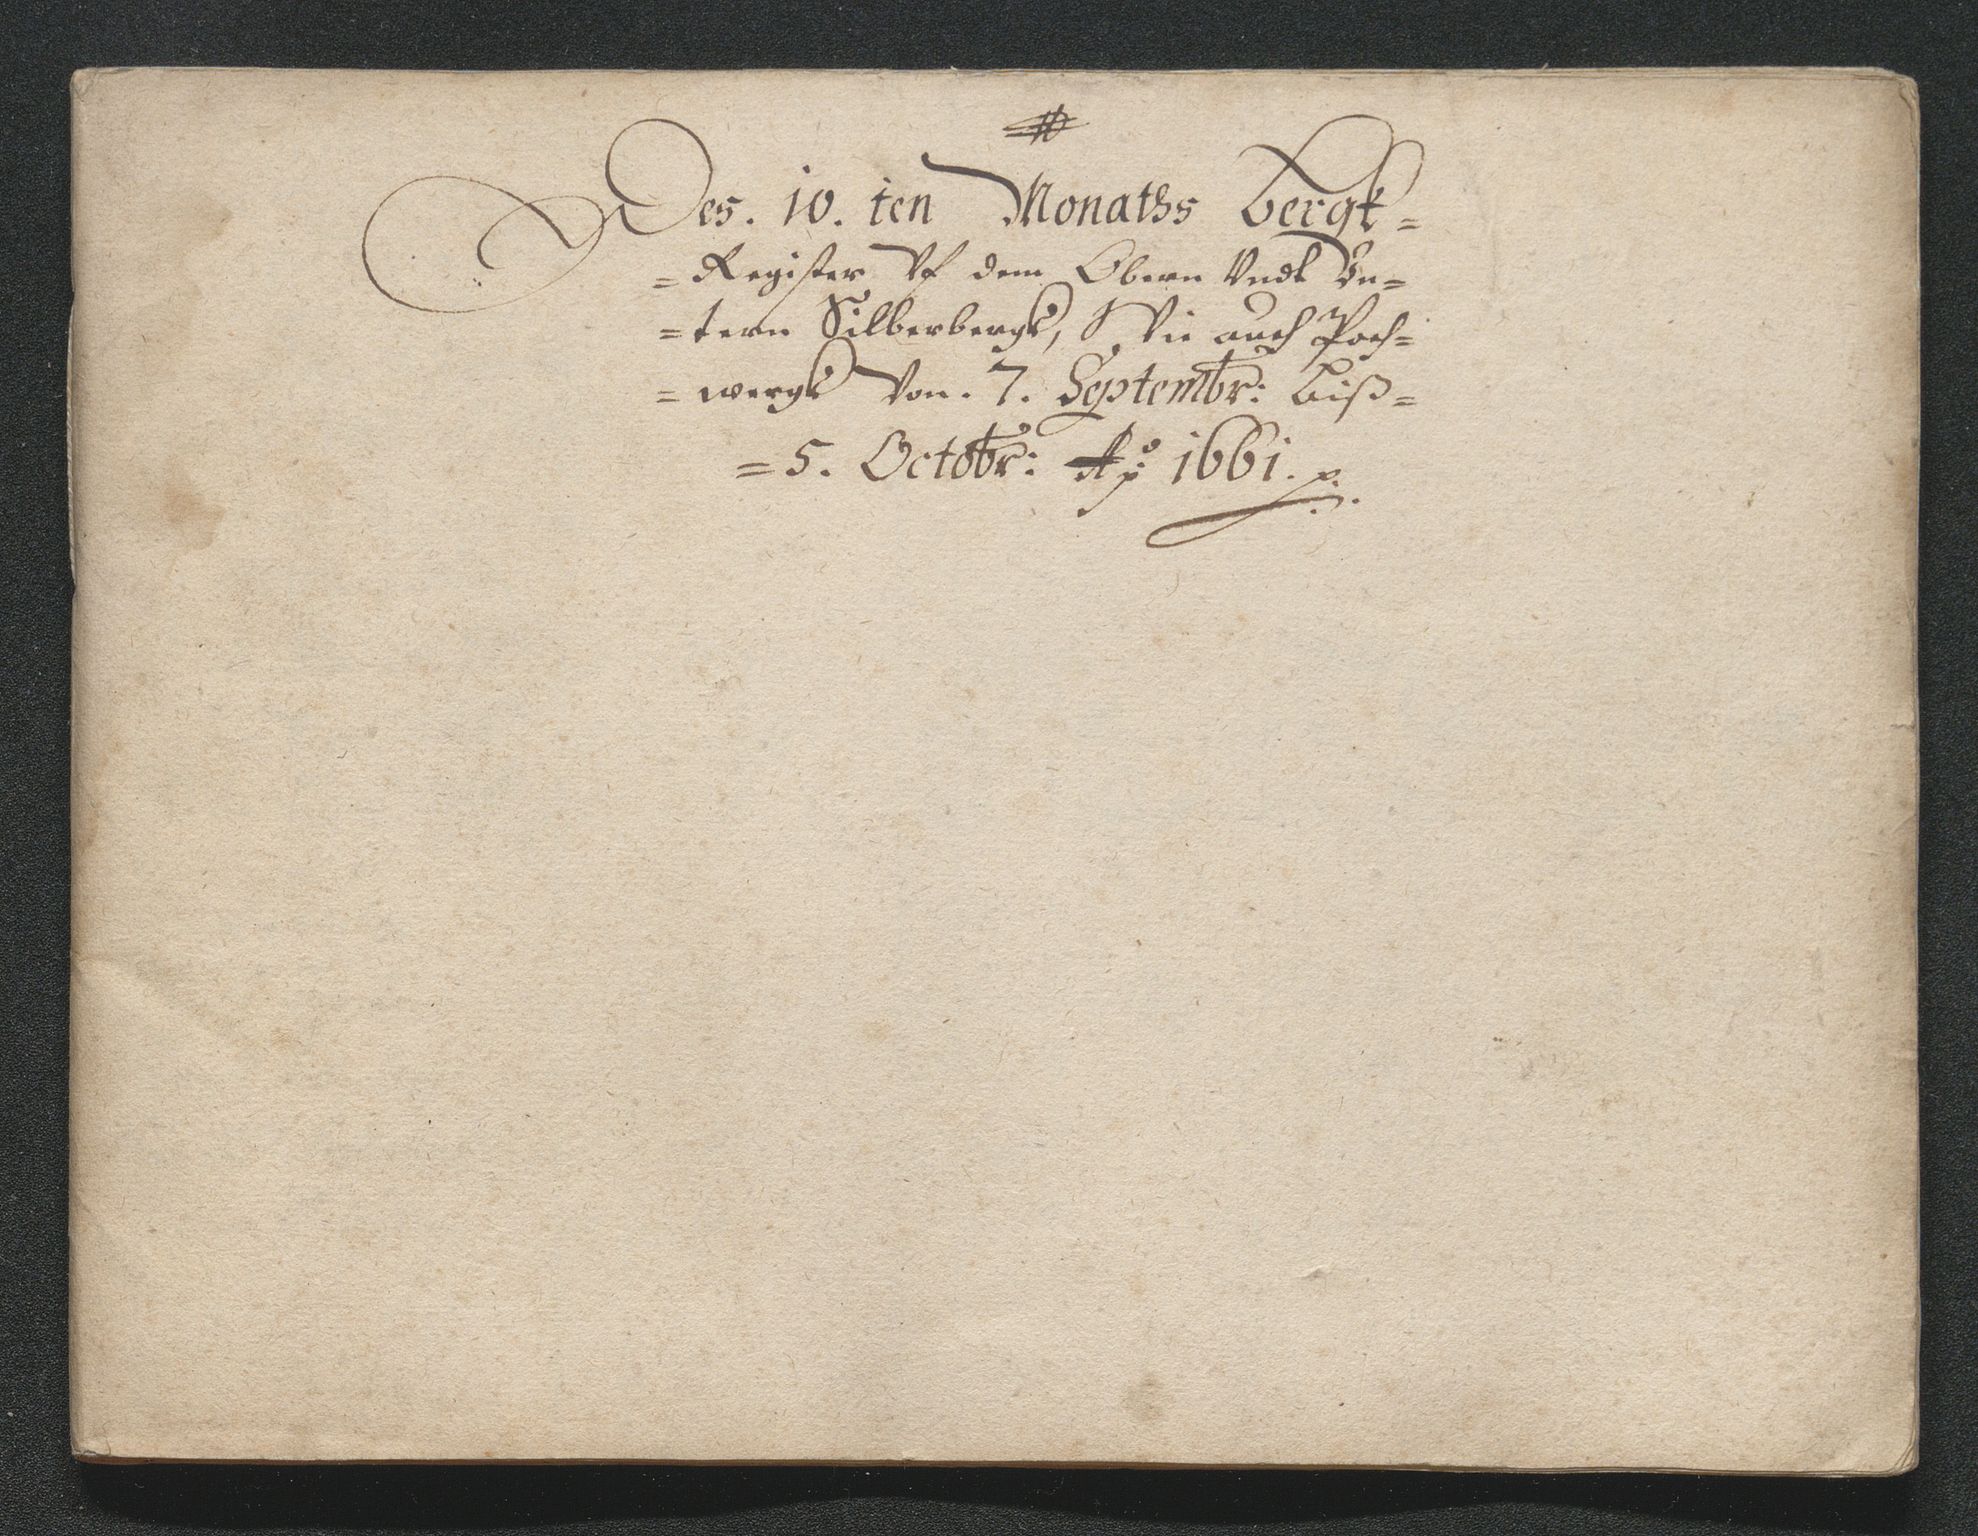 Des. 10. ten Monaths Bergk=
=Register Vf dem Obern Vndt Vn=
=tern Silberbergk, Wie auch Poch=
=wergk Von. 7. Septembr: biß=
=5. Octobr: Ao 1661.